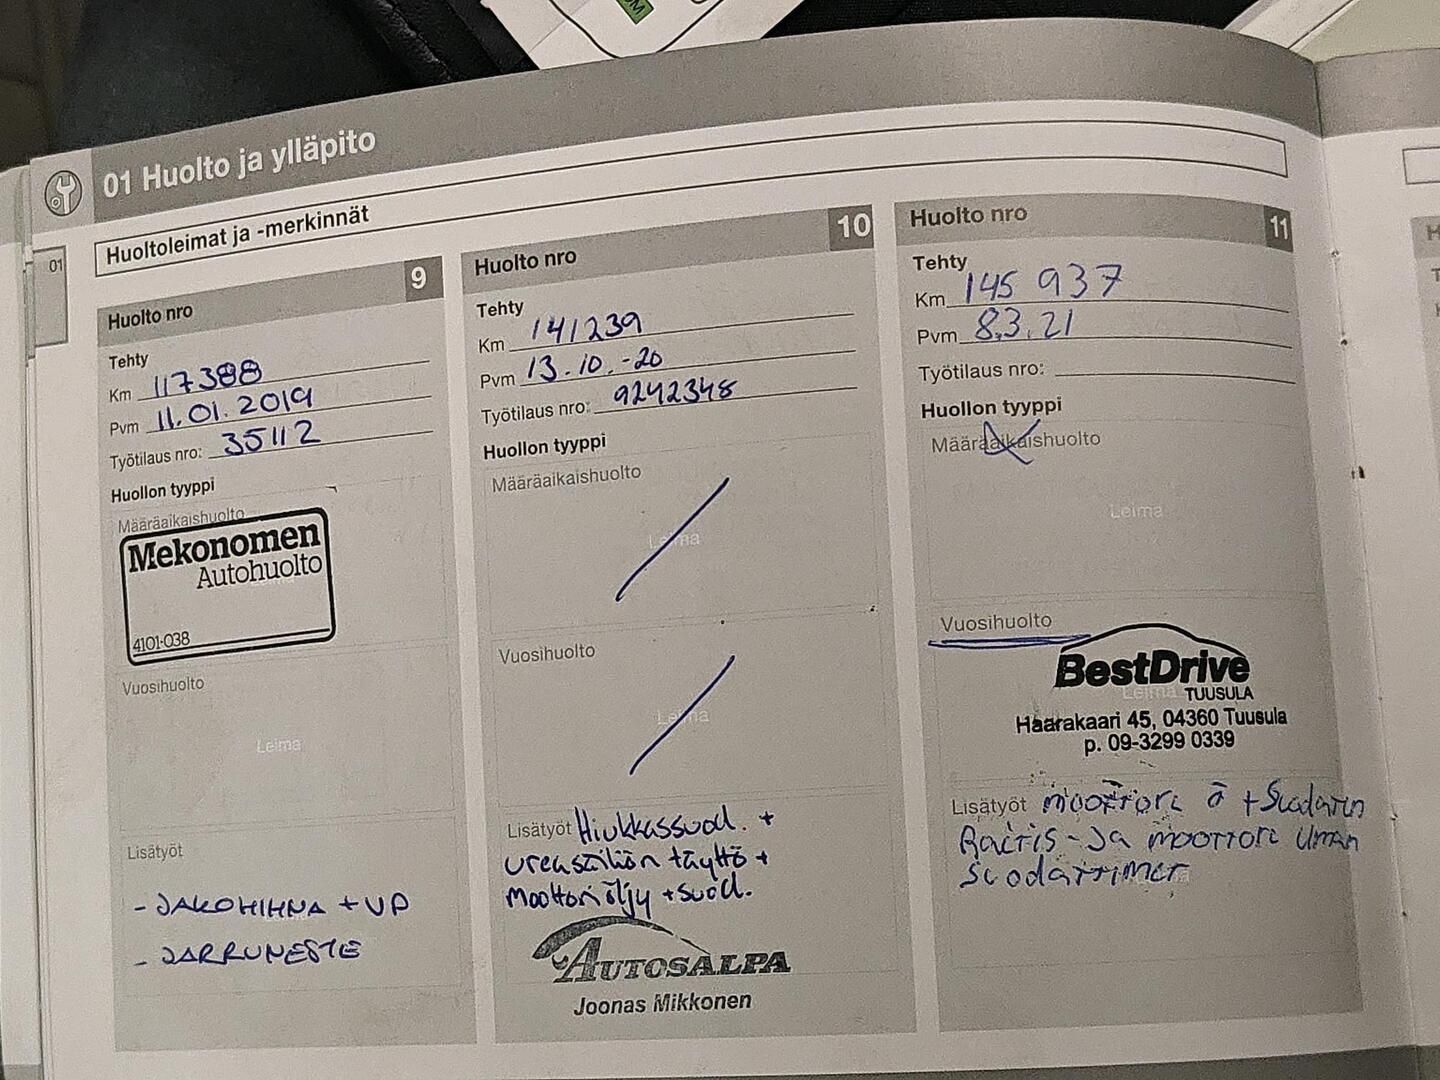 01 Huolto ja ylläpito
Huoltoleimat ja -merkinnät
01
Huolto nro 9
Tehty
Km 117388
Pvm 11.01.2019
Työtilaus nro: 35112
Huollon tyyppi
Määräaikaishuolto
Mekonomen
Autohuolto
4101-038
Vuosihuolto
Leima
Lisätyöt
- JAKOHIHNA + VP
- JARRUNESTE
Huolto nro 10
Tehty
Km 141239
Pvm 13.10.-20
Työtilaus nro: 9242348
Huollon tyyppi
Määräaikaishuolto
Leima
Vuosihuolto
Leima
Lisätyöt Hiukkassuod. +
Ureasäiliön täyttö +
Moottoriöljy + suod.
AUTOSALPA
Joonas Mikkonen
Huolto nro 11
Tehty
Km 145 937
Pvm 8.3.21
Työtilaus nro:
Huollon tyyppi
Määräaikaishuolto
Leima
Vuosihuolto
BestDrive
Leima TUUSULA
Haarakaari 45, 04360 Tuusula
p. 09-3299 0339
Lisätyöt moottori ö + Suodatin
Raitis- ja moottori ilman
suodattimet